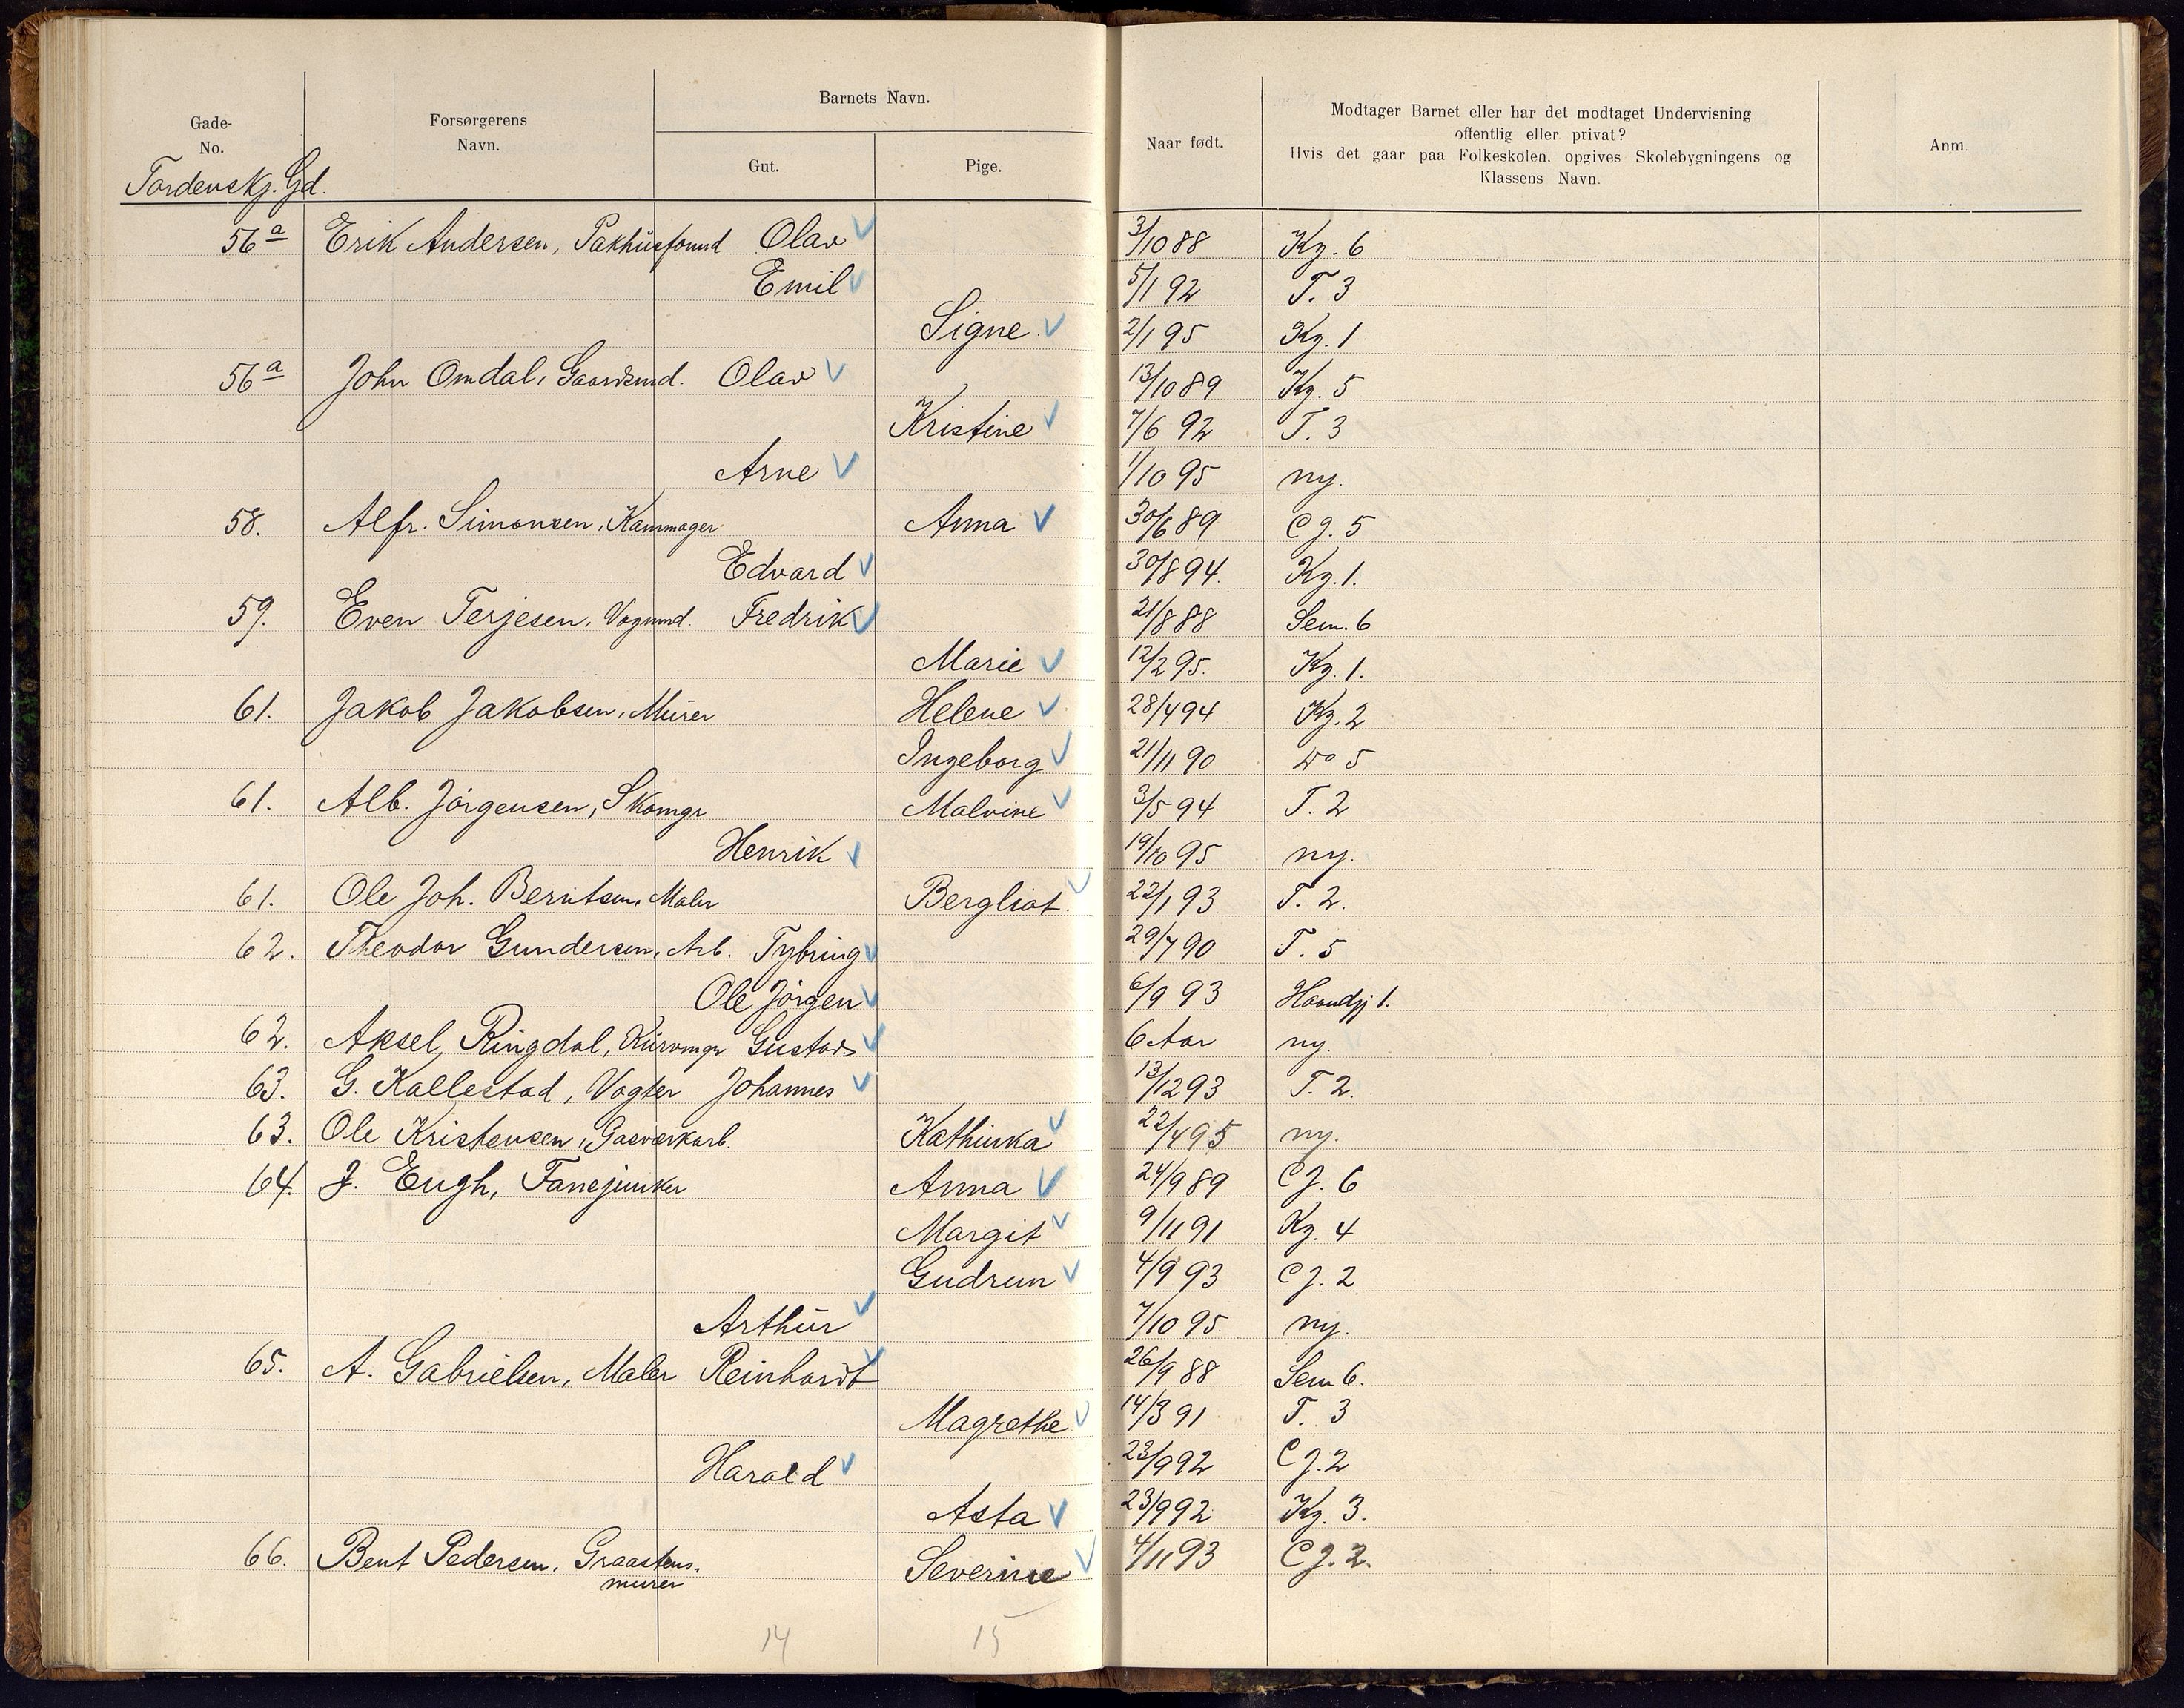 Gade-
No.
Forsørgerens
Navn.
Barnets Navn.
Gut.
Pige.
Naar født.
Modtager Barnet eller har det modtaget Undervisning
offentlig eller privat?
Hvis det gaar paa Folkeskolen, opgives Skolebygningens og
Klassens Navn.
Anm.
Tordenskj. Gd.
56a Erik Andersen, Pakhusformd Olav 3/10 88 Kg. 6
Emil 5/1 92 T. 3
Signe 2/1 95 Kg. 1
56a John Omdal, Gaardsmd. Olav 13/10 89 Kg. 5
Kristine 7/6 92 T. 3
Arne 1/10 95 ny.
58. Alfr. Simonsen, Kammager Anna 30/6 89 CJ. 5
Edvard 30/8 94. Kg. 1.
59. Even Terjesen, Vognmd. Fredrik 21/8 88 Sem. 6
Marie 12/2 95. Kg. 1.
61. Jakob Jakobsen, Murer Helene 28/4 94 Kg. 2
Ingeborg 21/11 90 Do 5
61. Alb. Jörgensen, Skomgr Malvine 3/5 94 T. 2
Henrik 19/10 95 ny.
61. Ole Joh. Berntsen, Maler Bergliot. 22/1 93 T. 2.
62. Theodor Gundersen, Arb. Tybring 29/7 90 T. 5
Ole Jörgen 6/9 93 1.
62. Aksel Ringdal, Kurvmgr Gustav 6 Aar ny.
63. G. Kallestad, Vagter Johannes 13/12 93 T. 2.
63. Ole Kristensen, Gasværkarb. Kathinka 22/4 95 ny.
64. J. Engh, Fanejunker Anna 24/9 89 CJ. 6
Margit 9/11 91 Kg. 4
Gudrun 4/9 93 CJ. 2
Arthur 7/10 95. ny.
65. A. Gabrielsen, Maler Reinhardt 26/9 88 Sem 6.
Magrethe 14/3 91 T. 3
Harald 23/9 92 CJ. 2
Asta 23/9 92 Kg. 3.
66. Bent Pedersen, Graastens- Severine 4/11 93 CJ. 2.
murer
14 15